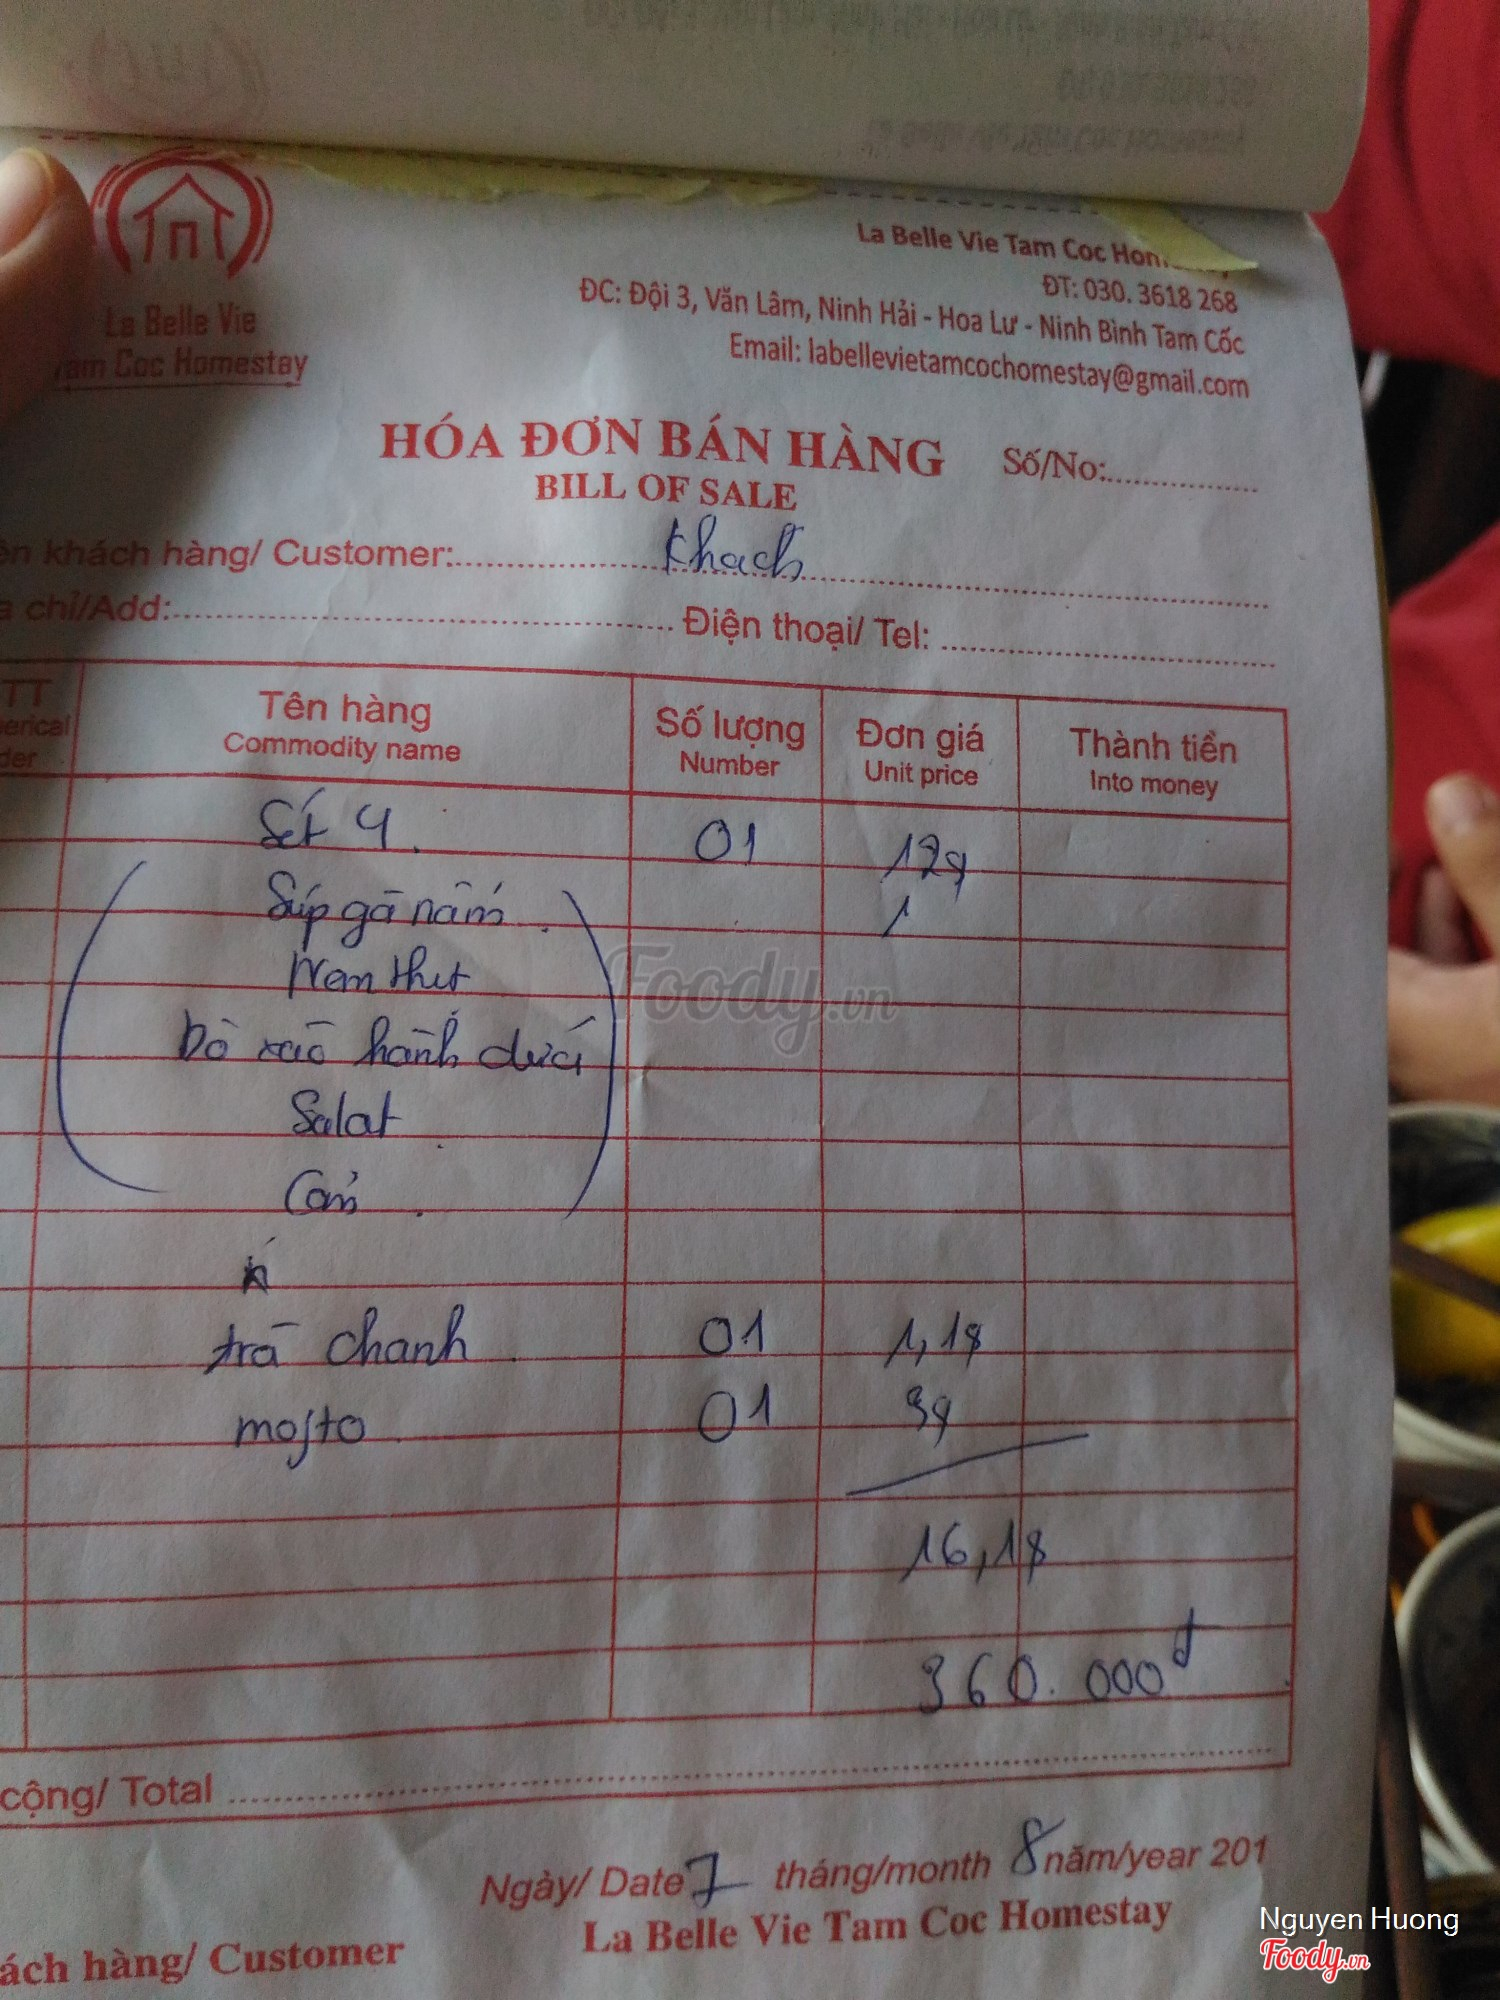 La Belle Vie
Tam Coc Homestay
La Belle Vie Tam Coc Homestay
ĐT: 030. 3618 268
ĐC: Đội 3, Văn Lâm, Ninh Hải - Hoa Lư - Ninh Bình Tam Cốc
Email: labellevietamcochomestay@gmail.com
HÓA ĐƠN BÁN HÀNG Số/No:
BILL OF SALE
ên khách hàng/ Customer: Khach
a chỉ/Add: Điện thoại/ Tel:
TT Tên hàng Số lượng Đơn giá Thành tiền
erical Commodity name Number Unit price Into money
der
Set 4 01 12$
Súp gà nấm
Nem thịt
bò xào hành dứa
Salat
Cơm
trà chanh 01 1,1$
mojto 01 3$
16,1$
360.000đ
cộng/ Total
Ngày/ Date 7 tháng/month 8 năm/year 201
La Belle Vie Tam Coc Homestay
ách hàng/ Customer
Foody.vn
Nguyen Huong
Foody.vn